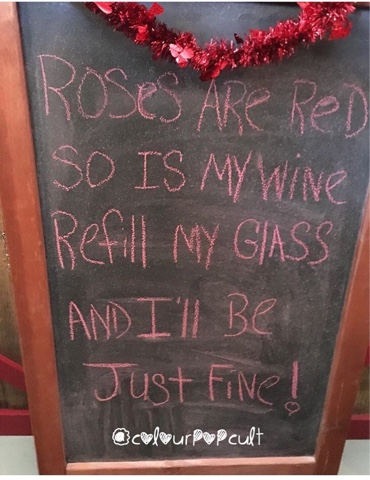 Roses Are Red
So Is My Wine
Refill My Glass
And I'll Be
Just Fine!
@colourpopcult